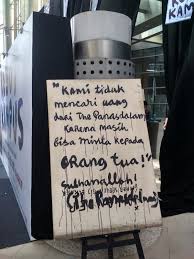 KAM
"Kami tidak
mencari uang
dari The Panasdalam
karena masih
bisa minta kepada
orang tua!"
Subhanallah!